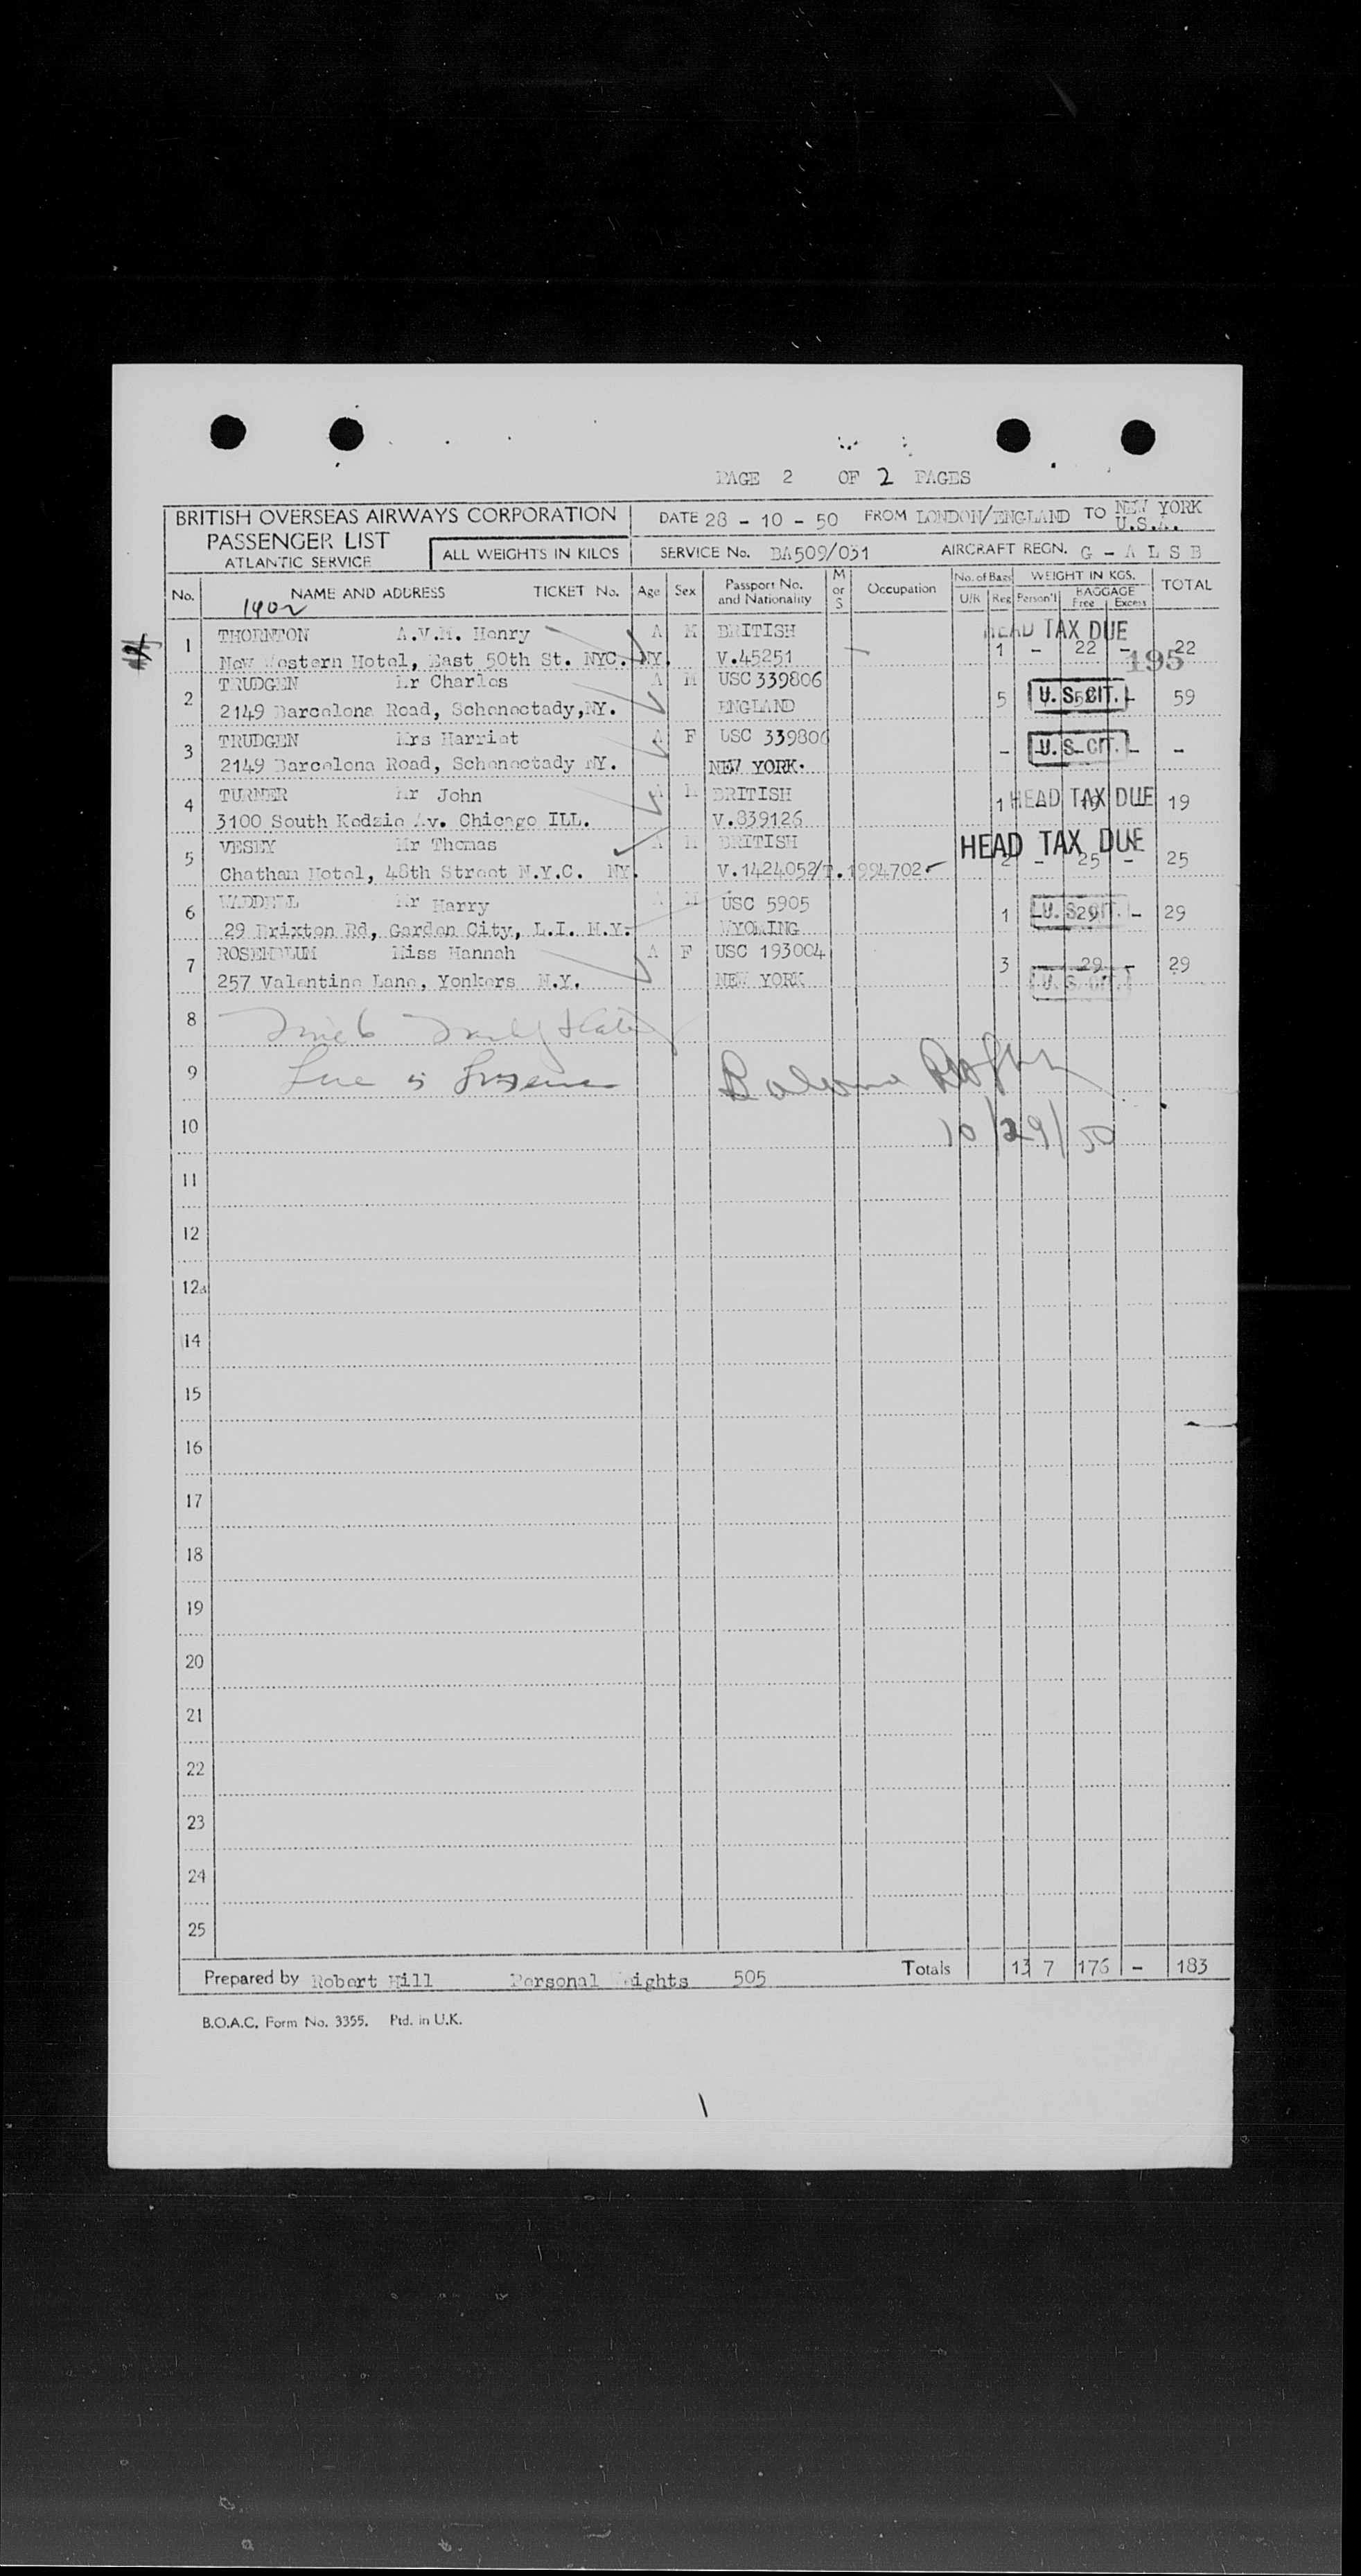 PAGE 2 OF 2 PAGES
BRITISH OVERSEAS AIRWAYS CORPORATION
PASSENGER LIST
ATLANTIC SERVICE
ALL WEIGHTS IN KILOS
DATE 28 - 10 - 50 FROM LONDON/ENGLAND TO NEW YORK U.S.A.
SERVICE No. BA509/031 AIRCRAFT REGN. G - A L S B
No. NAME AND ADDRESS TICKET No. Age Sex Passport No. and Nationality M or S Occupation No. of Bags U/R Reg WEIGHT IN KGS. Person'l BAGGAGE Free Excess TOTAL
1902
1 THORNTON A.V.M. Henry A M BRITISH HEAD TAX DUE
New Western Hotel, East 50th St. NYC. NY. V.45251 1 - 22 - 22
195
2 TRUDGEN Mr Charles A M USC 339806
2149 Barcelona Road, Schenectady, NY. ENGLAND 5 U.S. CIT. - 59
3 TRUDGEN Mrs Harriet A F USC 339806
2149 Barcelona Road, Schenectady NY. NEW YORK. - U.S. CIT. - -
4 TURNER Mr John A M BRITISH 1 HEAD TAX DUE 19 19
3100 South Kedzie Av. Chicago ILL. V.839126
5 VESEY Mr Thomas A M BRITISH HEAD TAX DUE
Chatham Hotel, 48th Street N.Y.C. NY. V.1424052/T.1994702 2 - 25 - 25
6 WADDELL Mr Harry A M USC 5905 1 U.S. CIT. 29 - 29
29 Brixton Rd, Garden City, L.I. N.Y. WYOMING
7 ROSENBLUM Miss Hannah A F USC 193004 3 - 29 - 29
257 Valentine Lane, Yonkers N.Y. NEW YORK U.S. CIT.
8
9
10 10/29/50
11
12
12a
14
15
16
17
18
19
20
21
22
23
24
25
Prepared by Robert Hill Personal Weights 505 Totals 13 7 176 - 183
B.O.A.C. Form No. 3355. Ptd. in U.K.